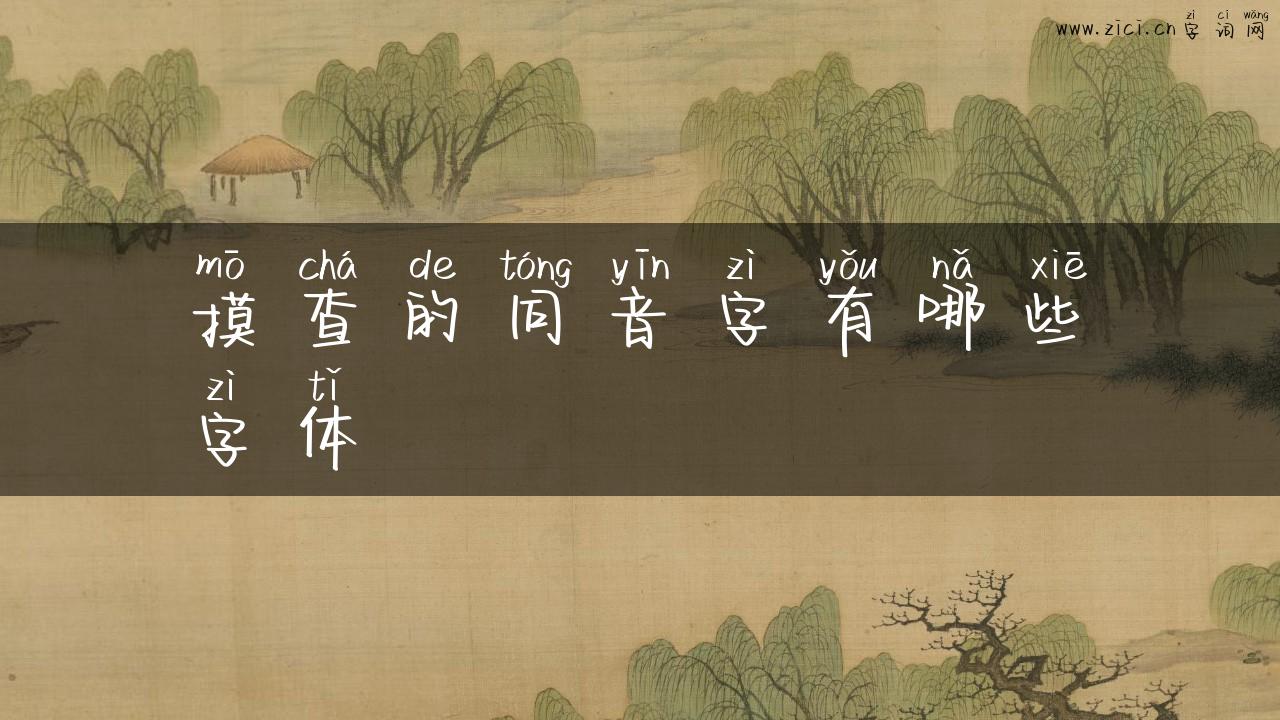 zì cí wǎng
www.zici.cn字词网
mō chá de tóng yīn zì yǒu nǎ xiē
摸查的同音字有哪些
zì tǐ
字体